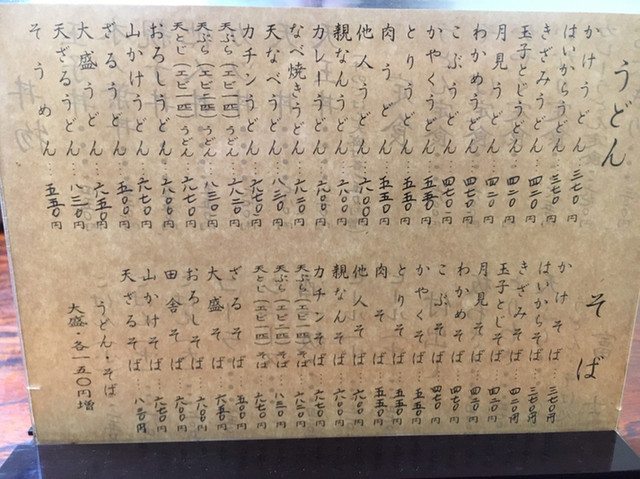 うどん
かけうどん 三七〇円
はいからうどん 三七〇円
きざみうどん 四二〇円
玉子とじうどん 四二〇円
月見うどん 四二〇円
わかめうどん 四七〇円
こぶうどん 四七〇円
かやくうどん 五五〇円
とりうどん 五五〇円
肉うどん 五五〇円
他人うどん 六〇〇円
親なんうどん 六〇〇円
カレーうどん 六〇〇円
なべ焼きうどん
天なんうどん 八三〇円
カチンうどん 六七〇円
天ぷら(エビ一匹)うどん 六二〇円
天ぷら(エビ二匹)うどん 八三〇円
天とじ(エビ一匹)うどん 六七〇円
おろしうどん 六〇〇円
山かけうどん 六七〇円
ざるうどん 五〇〇円
大盛うどん 六五〇円
天ざるうどん 八三〇円
そうめん 五五〇円
そば
かけそば 三七〇円
はいからそば 三七〇円
きざみそば 四二〇円
玉子とじそば 四二〇円
月見そば 四二〇円
わかめそば 四七〇円
こぶそば 四七〇円
かやくそば 五五〇円
とりそば 五五〇円
肉そば 五五〇円
他人そば 六〇〇円
親なんそば 六〇〇円
カチンそば 六七〇円
天ぷら(エビ一匹)そば 六二〇円
天ぷら(エビ二匹)そば 八三〇円
天とじ(エビ一匹)そば 六七〇円
ざるそば 五〇〇円
大盛そば 六五〇円
おろしそば 六〇〇円
田舎そば 六〇〇円
山かけそば 六七〇円
天ざるそば 八三〇円
うどん・そば
大盛・各一五〇円増